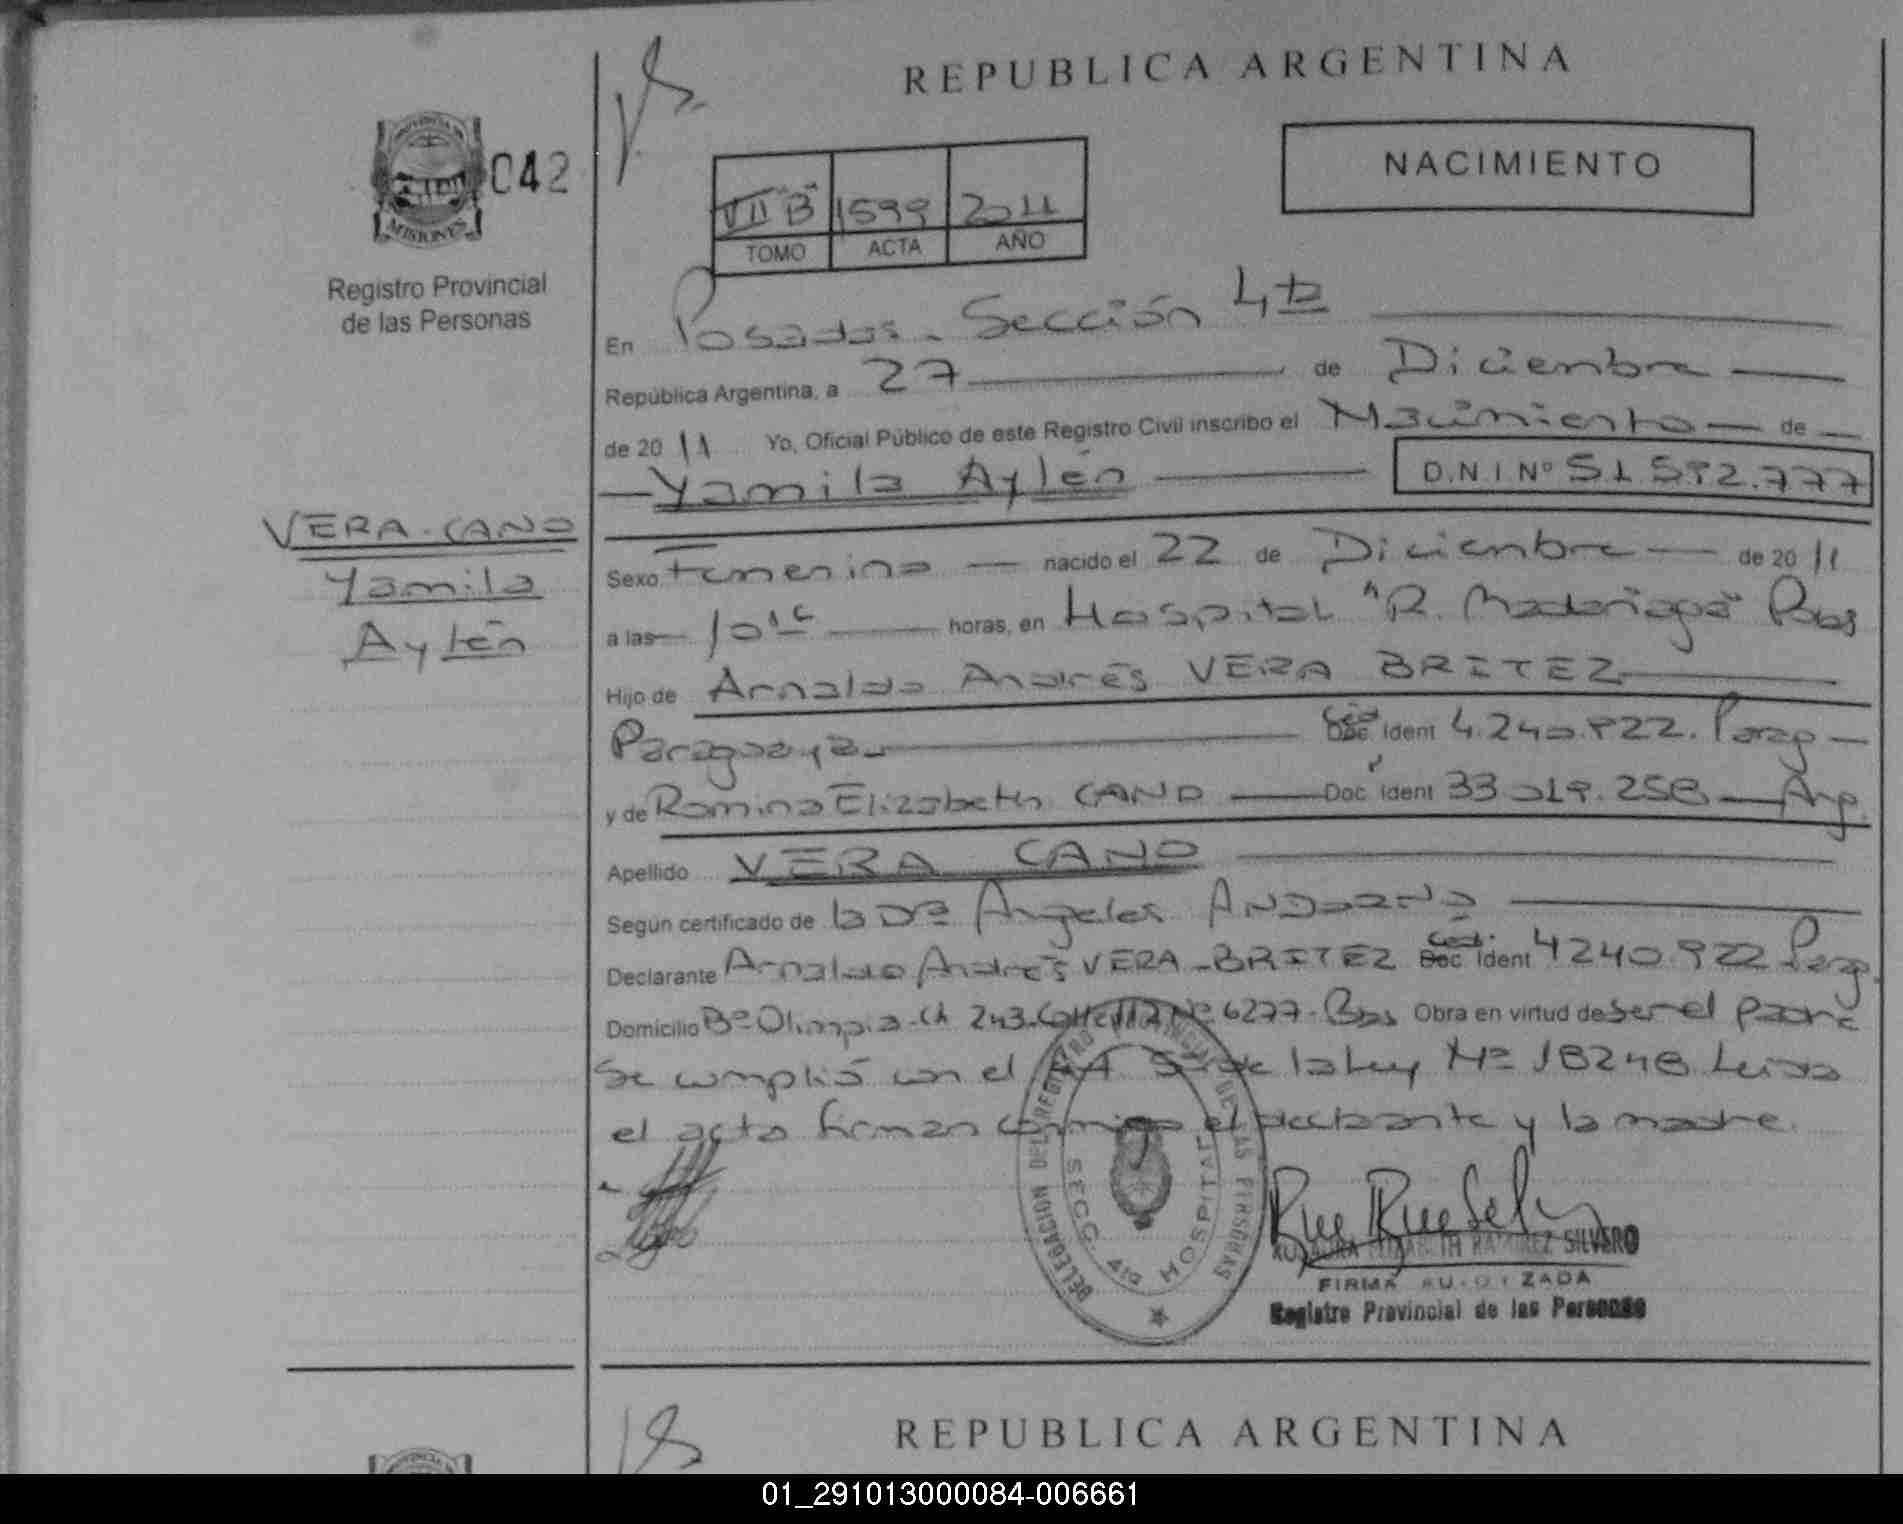 REPUBLICA ARGENTINA
PROVINCIA DE
MISIONES
042
NACIMIENTO
VII "B" 1599 2011
TOMO ACTA AÑO
Registro Provincial
de las Personas
En Posadas - Sección 4ta
República Argentina, a 27 de Diciembre
de 2011 Yo, Oficial Público de este Registro Civil inscribo el Nacimiento de
Yamila Aylén D.N.I Nº 51.592.777
VERA - CANO
Yamila
Aylén
Sexo Femenino nacido el 22 de Diciembre de 2011
a las 10 horas, en Hospital "R. Madariaga" Pdas
Hijo de Arnaldo Andrés VERA BRITEZ
Paraguaya Doc Ident 4.240.922. Parag
y de Romina Elizabeth CANO Doc Ident 33.019.258 Arg.
Apellido VERA CANO
Según certificado de la Drª Angeles
Declarante Arnaldo Andrés VERA - BRITEZ Doc Ident 4240.922 Parag.
Domicilio Bº Olimpia - Ch 243 - Nº 6277 - Pdas Obra en virtud de ser el padre
Se cumplió con el Art de la Ley Nº 18248 Leida
el acta firman conmigo el declarante y la madre.
DELEGACION DEL REGISTRO PROVINCIAL DE LAS PERSONAS
SECC. 4ta HOSPITAL
ELIZABETH RAMIREZ SILVERO
FIRMA AUTORIZADA
Registro Provincial de las Personas
REPUBLICA ARGENTINA
01_291013000084-006661